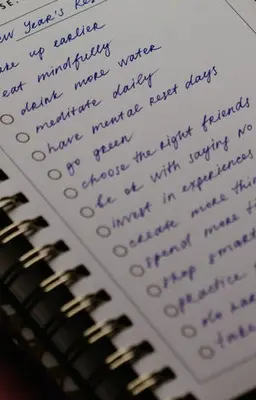 SE.
New Year's Res
ake up earlier
eat mindfully
drink more water
meditate daily
have mental reset days
go green
choose the right friends
be ok with saying no
invest in experiences
create more thin
spend more ti
shop smart
practice
do har
take